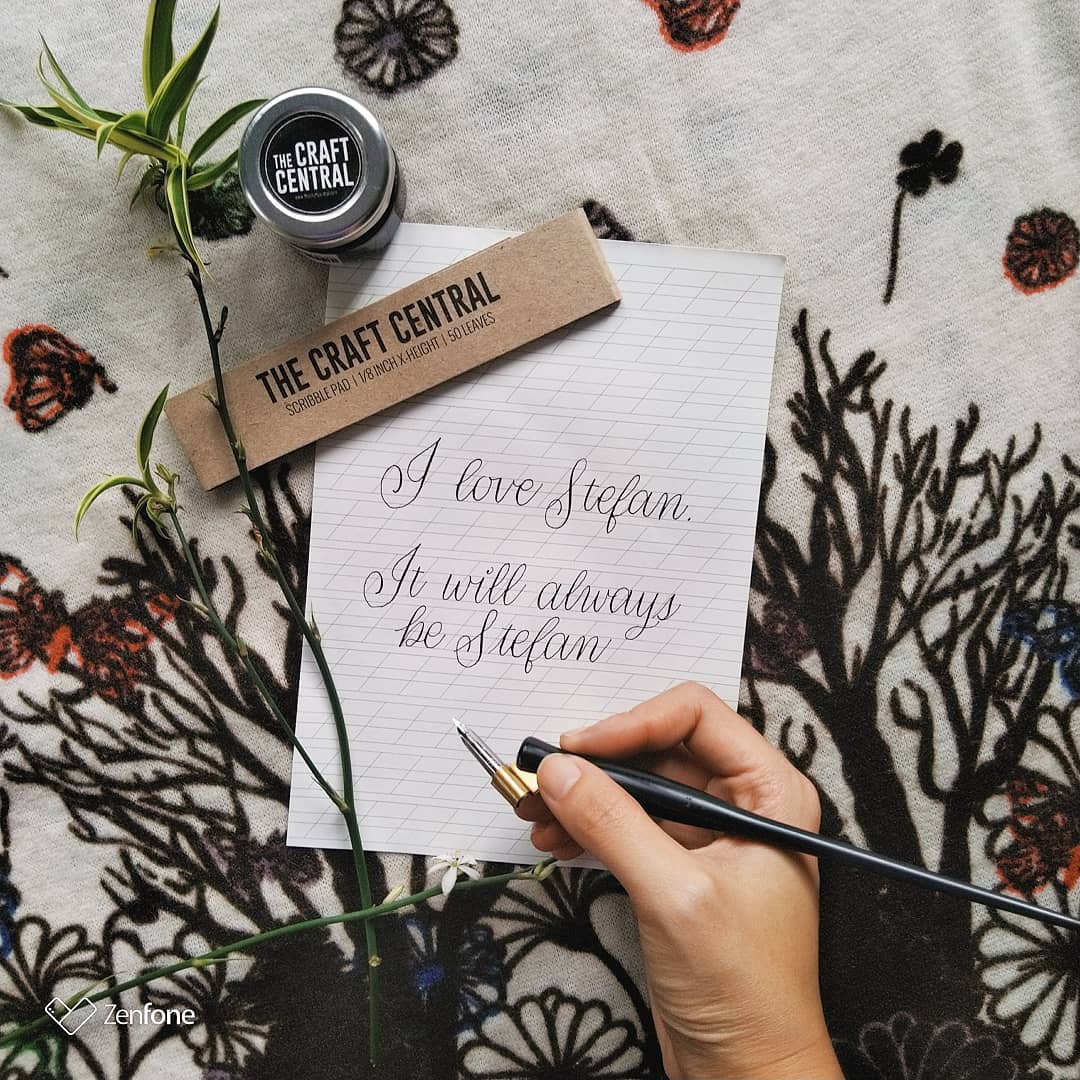 THE CRAFT
CENTRAL
THE CRAFT CENTRAL
SCRIBBLE PAD | 1/8 INCH X-HEIGHT | 50 LEAVES
I love Stefan.
It will always
be Stefan
Zenfone